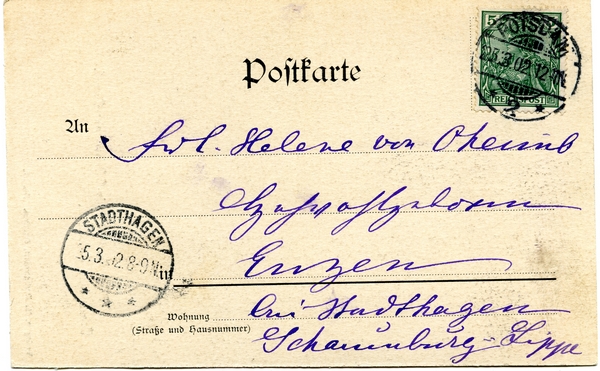 Postkarte
5
REICHSPOST
POTSDAM
5.3.02.12-
2
An
Frl. Helene von Oheimb
Hochwohlgeboren
Enzen
bei Stadthagen
Schaumburg-Lippe
STADTHAGEN
5.3.02.8-9N
in
Wohnung
(Straße und Hausnummer)